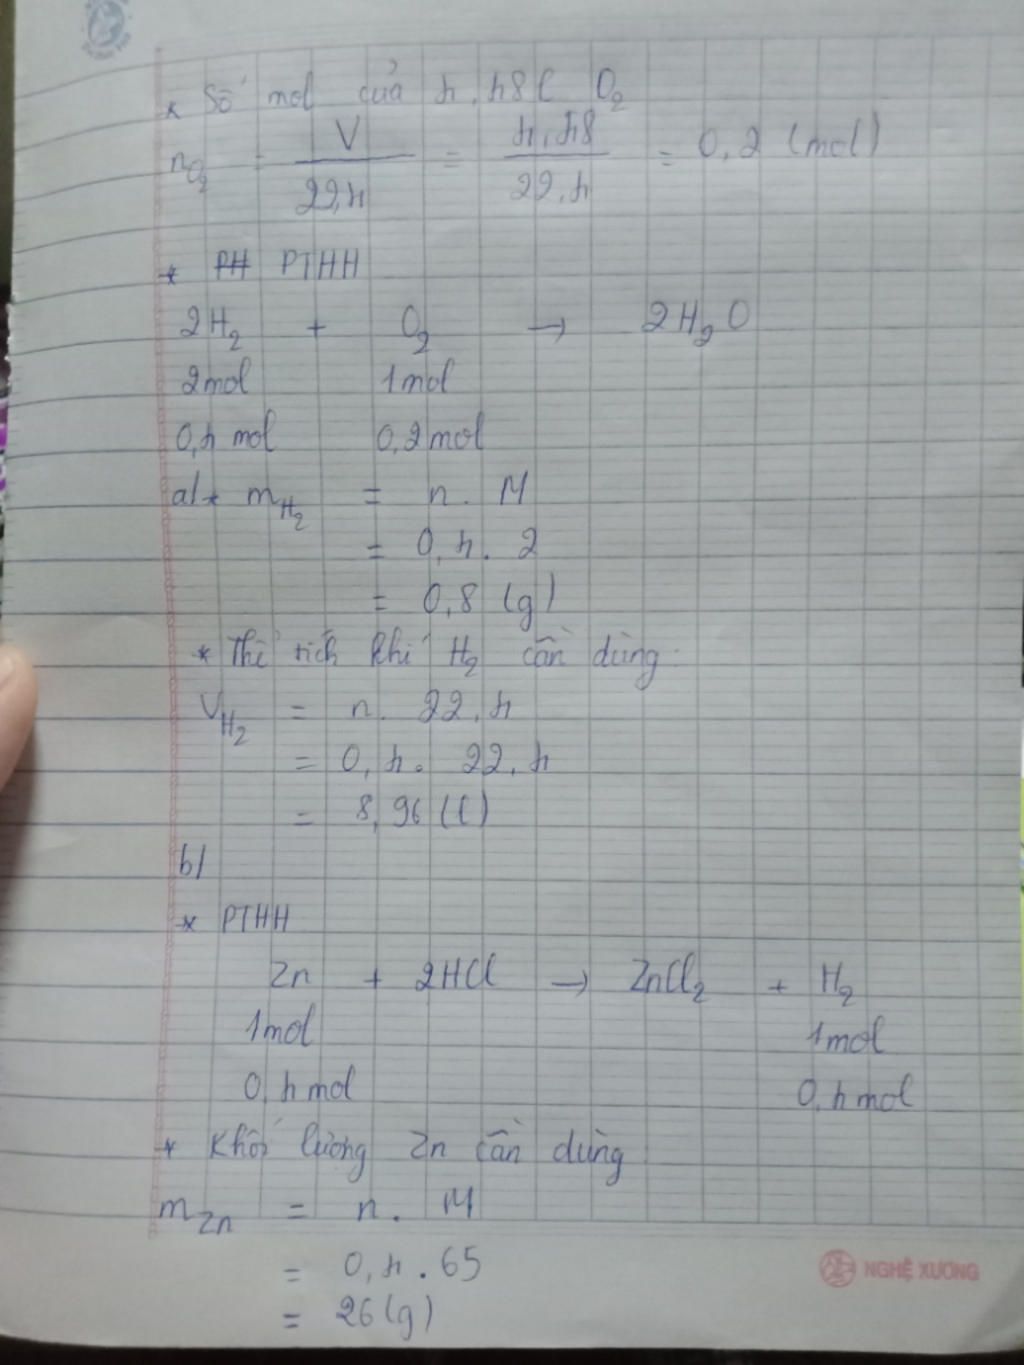 * Số mol của 4,48l O₂
nO₂ = V/22,4 = 4,48/22,4 = 0,2 (mol)
* PH PTHH
2H₂ + O₂ → 2H₂O
2mol 1mol
0,4 mol 0,2mol
a/* mH₂ = n. M
= 0,4. 2
= 0,8 (g)
* Thể tích khí H₂ cần dùng:
VH₂ = n. 22,4
= 0,4. 22,4
= 8,96 (l)
b/
* PTHH
Zn + 2HCl → ZnCl₂ + H₂
1mol 1mol
0,4mol 0,4mol
* Khối lượng Zn cần dùng
mZn = n. M
= 0,4.65
= 26(g)
NGHỆ XƯƠNG